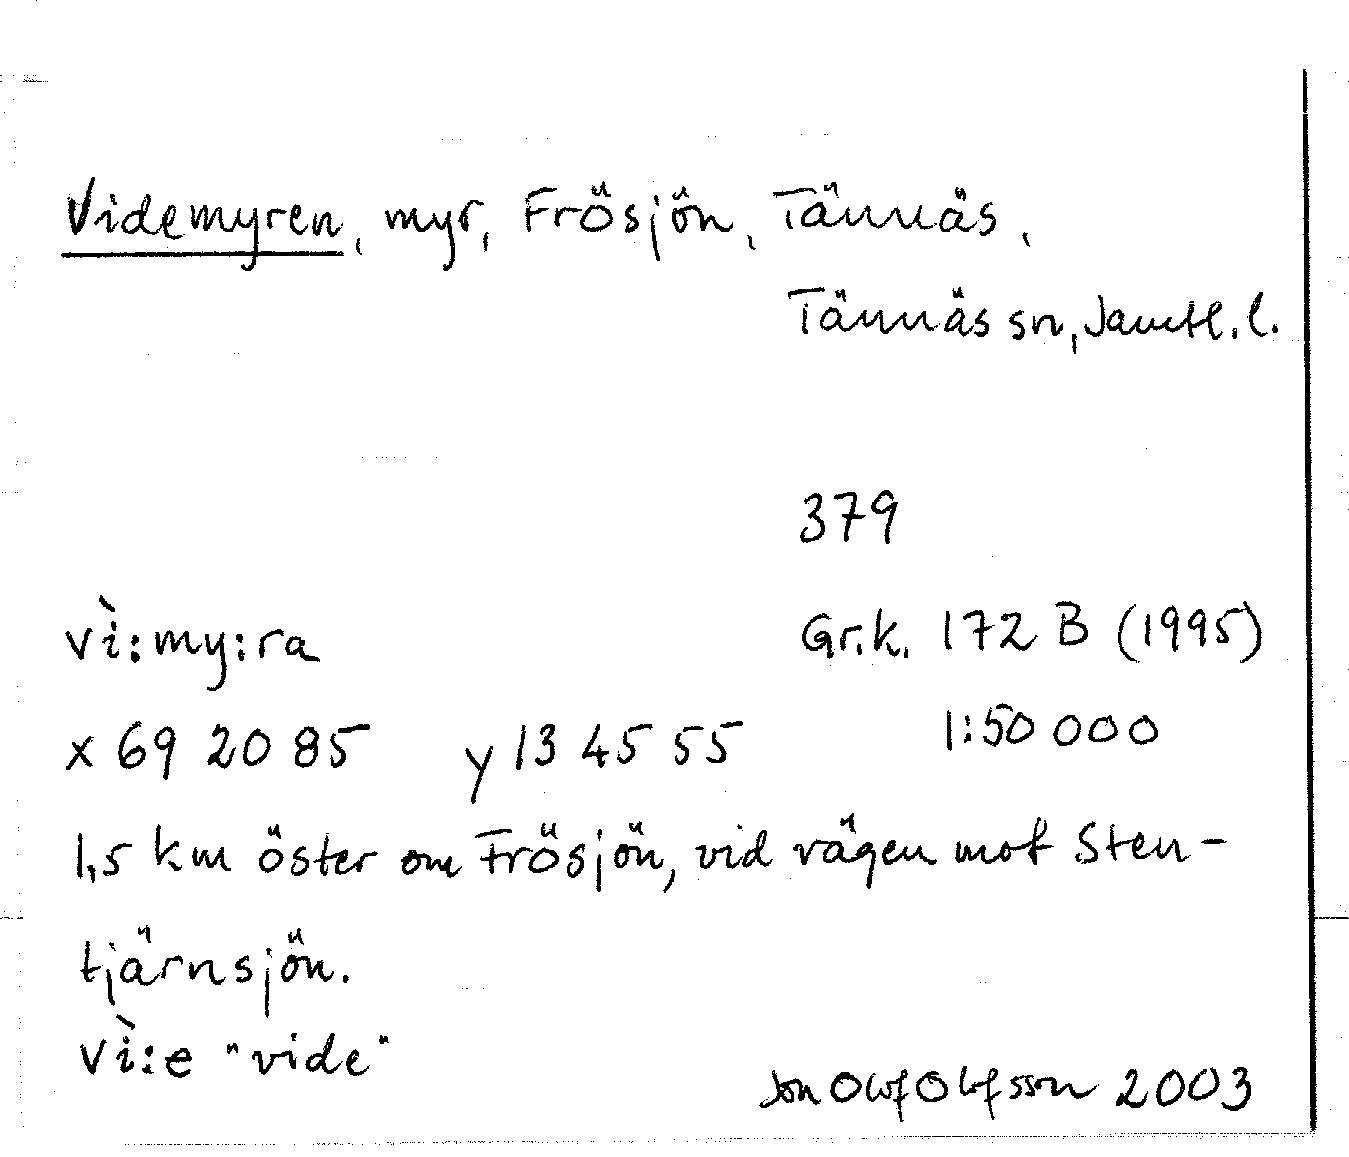 Videmyren, myr, Frösjön, Tännäs,
Tännäs sn, Jämtl. l.
379
vì:my:ra
Gr.k. 172 B (1995)
x 69 20 85 y 13 45 55
1:50 000
1,5 km öster om Frösjön, vid vägen mot Sten-
tjärnsjön.
vì:e "vide"
Jon Olof Olofsson 2003